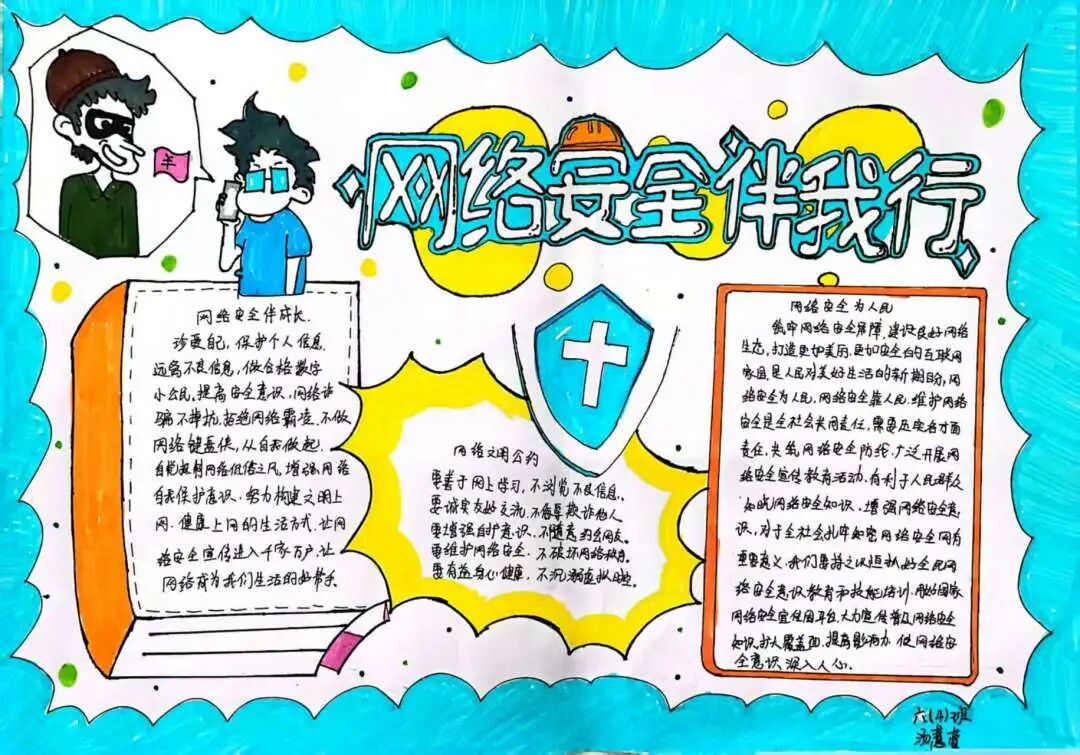 网络安全伴我行
羊
网络安全伴成长.
珍爱自己,保护个人信息.
远离不良信息,做合格数字
小公民,提高安全意识,网络诈
骗不单机,拒绝网络霸凌.不做
网络键盘侠,从自我做起.
自觉抵制网络低俗之风,增强网络
自我保护意识.努力构建文明上
网.健康上网的生活方式.让网
络安全宣传进入千家万户,让
网络成为我们生活的好帮手.
网络文明公约
要善于网上学习,不浏览不良信息.
要诚实友好交流,不侮辱欺诈他人
要增强自护意识.不随意约会网友.
要维护网络安全.不破坏网络秩序.
要有益身心健康,不沉溺虚拟时空.
网络安全为人民
筑牢网络安全屏障,建设良好网络
生态,打造更加美丽.更加安全的互联网
家园,是人民对美好生活的新期盼,网
络安全为人民,网络安全靠人民.维护网络
安全是全社会共同责任,需要压实各方面
责任,共筑网络安全防线,广泛开展网
络安全宣传教育活动.有利于人民群众
知晓网络安全知识.增强网络安全意
识,对于全社会扎牢织密网络安全网有
重要意义.我们要持之以恒抓好全民网
络安全意识教育和技能培训.用好国家
网络安全宣传周平台,大力宣传普及网络安全
知识,扩大覆盖面.提高影响力.使网络安
全意识深入人心.
六(4)班
汤